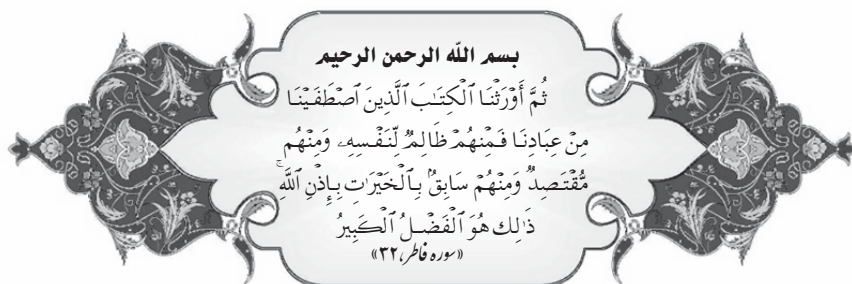 بسم الله الرحمن الرحيم
ثُمَّ أَوْرَثْنَا ٱلْكِتَٰبَ ٱلَّذِينَ ٱصْطَفَيْنَا
مِنْ عِبَادِنَا فَمِنْهُمْ ظَالِمٌ لِّنَفْسِهِۦ وَمِنْهُم
مُّقْتَصِدٌ وَمِنْهُمْ سَابِقٌۢ بِٱلْخَيْرَٰتِ بِإِذْنِ ٱللَّهِ ۚ
ذَٰلِكَ هُوَ ٱلْفَضْلُ ٱلْكَبِيرُ
«سوره فاطر، ۳۲»